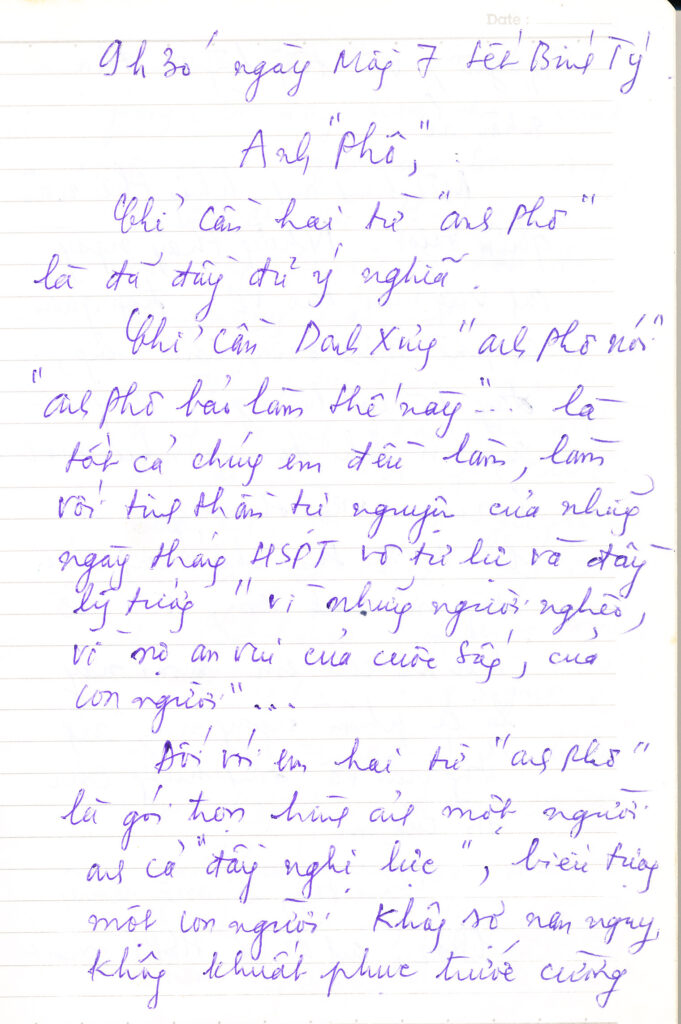 Date :
9h 30' ngày Mồng 7 tết Bính Tý
Anh "Phô",
Chỉ cần hai từ "anh Phô"
là đã đầy đủ ý nghĩa.
Chỉ cần Danh Xưng "anh Phô nói"
"anh Phô bảo làm thế này"... là
tất cả chúng em đều làm, làm
với tinh thần tự nguyện của những
ngày tháng HSPT vô tư lự và đầy
lý tưởng "vì những người nghèo,
vì sự an vui của cuộc sống, của
con người"...
Đối với em hai từ "anh Phô"
là gói trọn hình ảnh một người
anh cả "đầy nghị lực", biểu tượng
một con người không sợ nan nguy,
không khuất phục trước cường